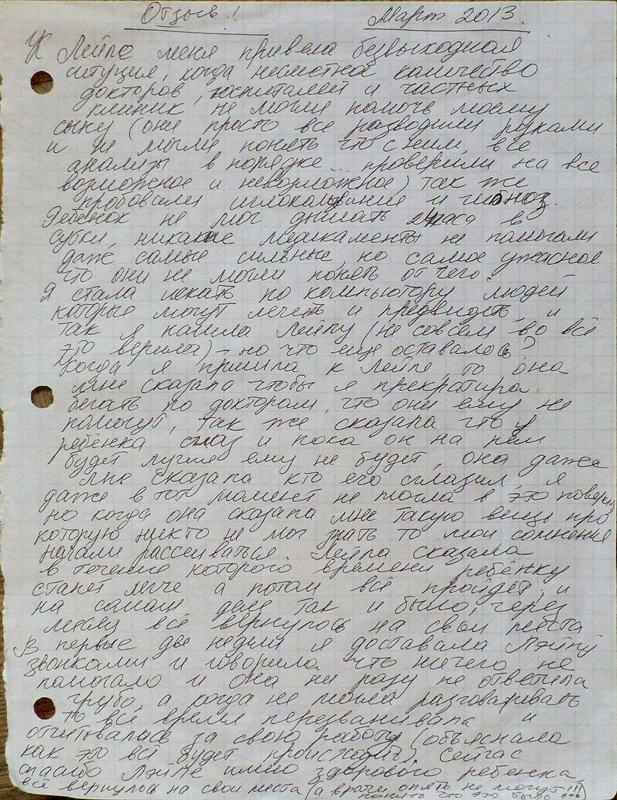 Отзыв! Март 2013.
К Лейле меня привела безвыходная
ситуция, когда несметное количество
докторов, госпиталей и частных
клиник, не могли помочь моему
сыну (они просто все разводили руками
и не могли понять что с ним, все
анализы в порядке... проверили на все
возможное и невозможное) так же
пробовали иглокалывание и гипноз.
Ребёнок не мог дышать часа в
сутки, никакие медикаменты не помогали
даже самые сильные, но самое ужасное
что они не могли понять от чего?
Я стала искать по компьютору людей
которые могут лечить и предвидеть, и
так я нашла Лейлу (не совсем во всё
это верила) – но что еще оставалось?
Когда я пришла к Лейле, то она
мне сказала чтобы я прекратила
бегать по докторам, что они ему не
помогут, так же сказала что у
ребёнка сглаз и пока он на нём
будет лучше ему не будет, она даже
мне сказала кто его сглазил, я
даже в тот момент не могла в это поверить
но когда она сказала мне такую вещь про
которую никто не мог знать то мои сомнения
начали рассеиваться. Лейла сказала
в течение которого времени ребёнку
станет легче а потом всё пройдет, и
на самом деле так и было, через
месяц всё вернулось на свои места
В первые две недели я доставала Лэйлу
звонками и говорила что ничего не
помогало и она ни разу не ответила
грубо, а когда не могла разговаривать
то всё время перезванивала и
отчитывалась за свою работу (объясняла
как это всё будет происходить). Сейчас
спасибо Лэйле имею здорового ребенка
всё вернулось на свои места (а врачи опять не могут
понять что это было...)!!!